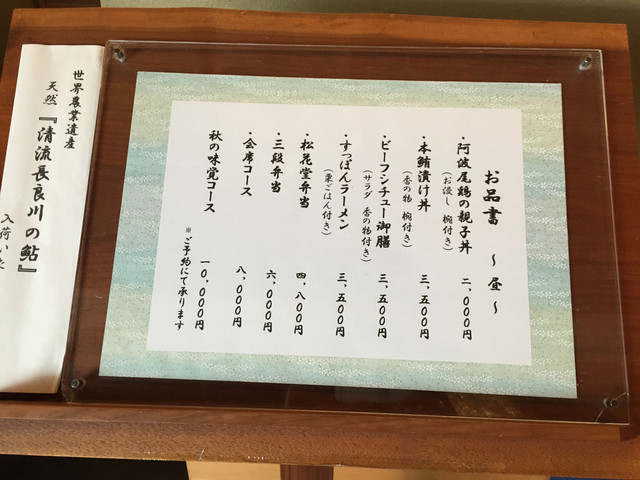 お品書 ～昼～
・阿波尾鶏の親子丼 二,〇〇〇円
(お浸し 椀付き)
・本鮪漬け丼 三,五〇〇円
(香の物 椀付き)
・ビーフシチュー御膳 三,五〇〇円
(サラダ 香の物付き)
・すっぽんラーメン 三,五〇〇円
(栗ごはん付き)
・松花堂弁当 四,八〇〇円
・三段弁当 六,〇〇〇円
・会席コース 八,〇〇〇円
秋の味覚コース 一〇,〇〇〇円
※ご予約にて承ります
世界農業遺産
天然『清流長良川の鮎』
入荷いた